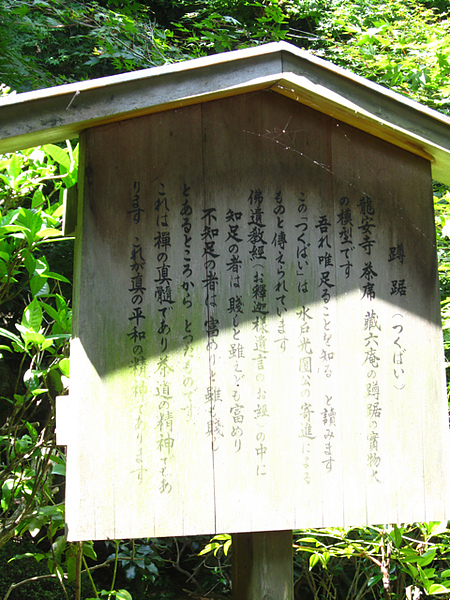 蹲踞（つくばい）
龍安寺茶席藏六庵の蹲踞の實物大
の模型です
吾れ唯足ることを知る と讀みます
この「つくばい」は水戸光圀公の寄進による
ものと傳えられています
佛遺教経（お釋迦様遺言のお経）の中に
知足の者は賤しと雖えども富めり
不知足の者は富めりと雖ども賤し
とあるところから とつたものです
これは禅の真髄であり茶道の精神であ
ります これが真の平和の精神であります